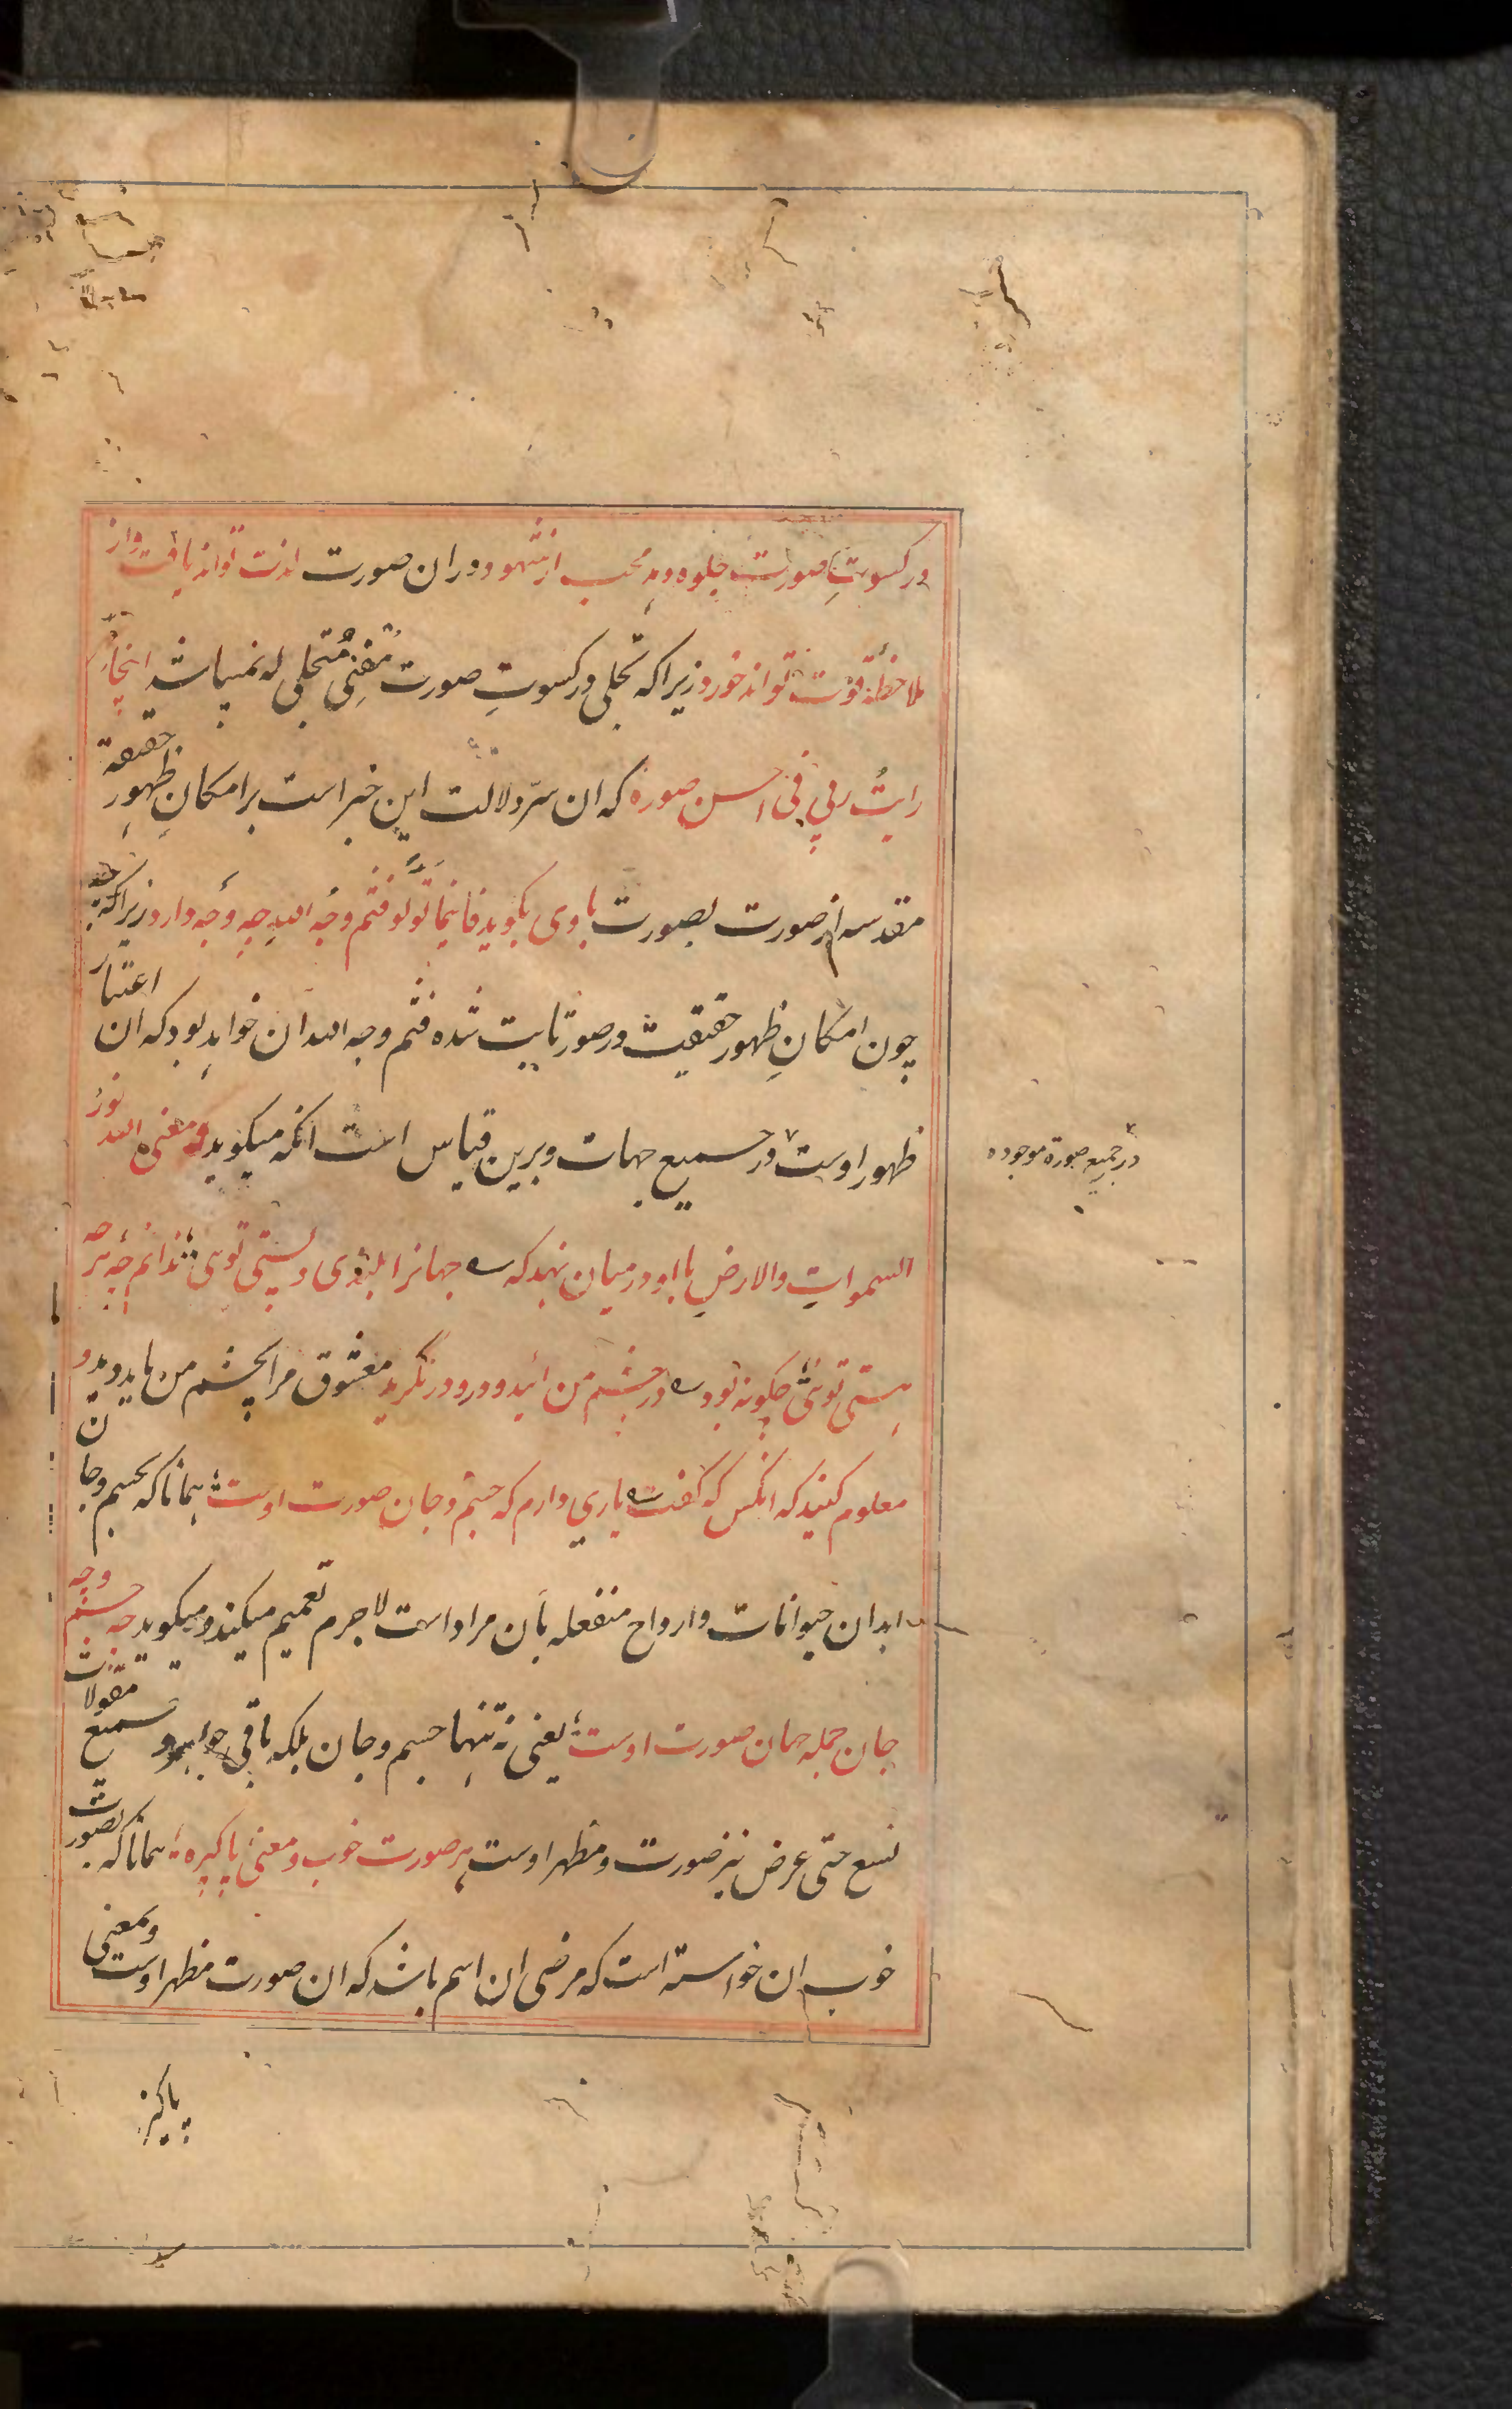 در کسوتِ صورت جلوه دهد محب از شهود در ان صورت لذت تواند یافت واز
ملاحظهٔ قوت تواند خورد زیرا که تجلی در کسوتِ صورت مُفنِی مُتجلی له نمیباشد اینجا
رایتُ ربی فی احسن صوره که ان سرّ دلالت این خبر است بر امکانِ ظهور حقیقة
مقدسه از صورت بصورت با وی بگوید فاینما تولّوا فثم وجه الله چه وجه دارد زیرا که
چون امکانِ ظهور حقیقیت در صور ثابت شده فثم وجه الله ان خواهد بود که ان اعتبار
ظهور اوست در جمیع جهات و برین قیاس است انکه میکوید و معنی الله نورُ
در جمیع صورة موجوده
السمواتِ والارضِ با او در میان نهد که جهانرا بلندی و پستی تویی ندانم چهٔ هر چه
هستی تویی چکونه بود در چشم من آئید و درو درنگرید معشوق مرا بچشم من باید دید و
معلوم کنید که انکس که گفت یاری دارم که جسم و جان صورت اوست همانا که بجسم و جان
ابدان حیوانات و ارواح منفعله بآن مراد است لاجرم تعمیم میکند و میکوید چه جسم و چه
جان جمله جهان صورت اوست یعنی نه تنها جسم و جان بلکه باقی جواهر و جمیع مقولات
تسع حتی عرض نیز صورت و مظهر اوست هر صورت خوب و معنی پاکیزه همانا که بصورت
خوب ان خواسته است که مرضی ان اسم باشد که ان صورت مظهر اوست و بمعنی
پاکیز